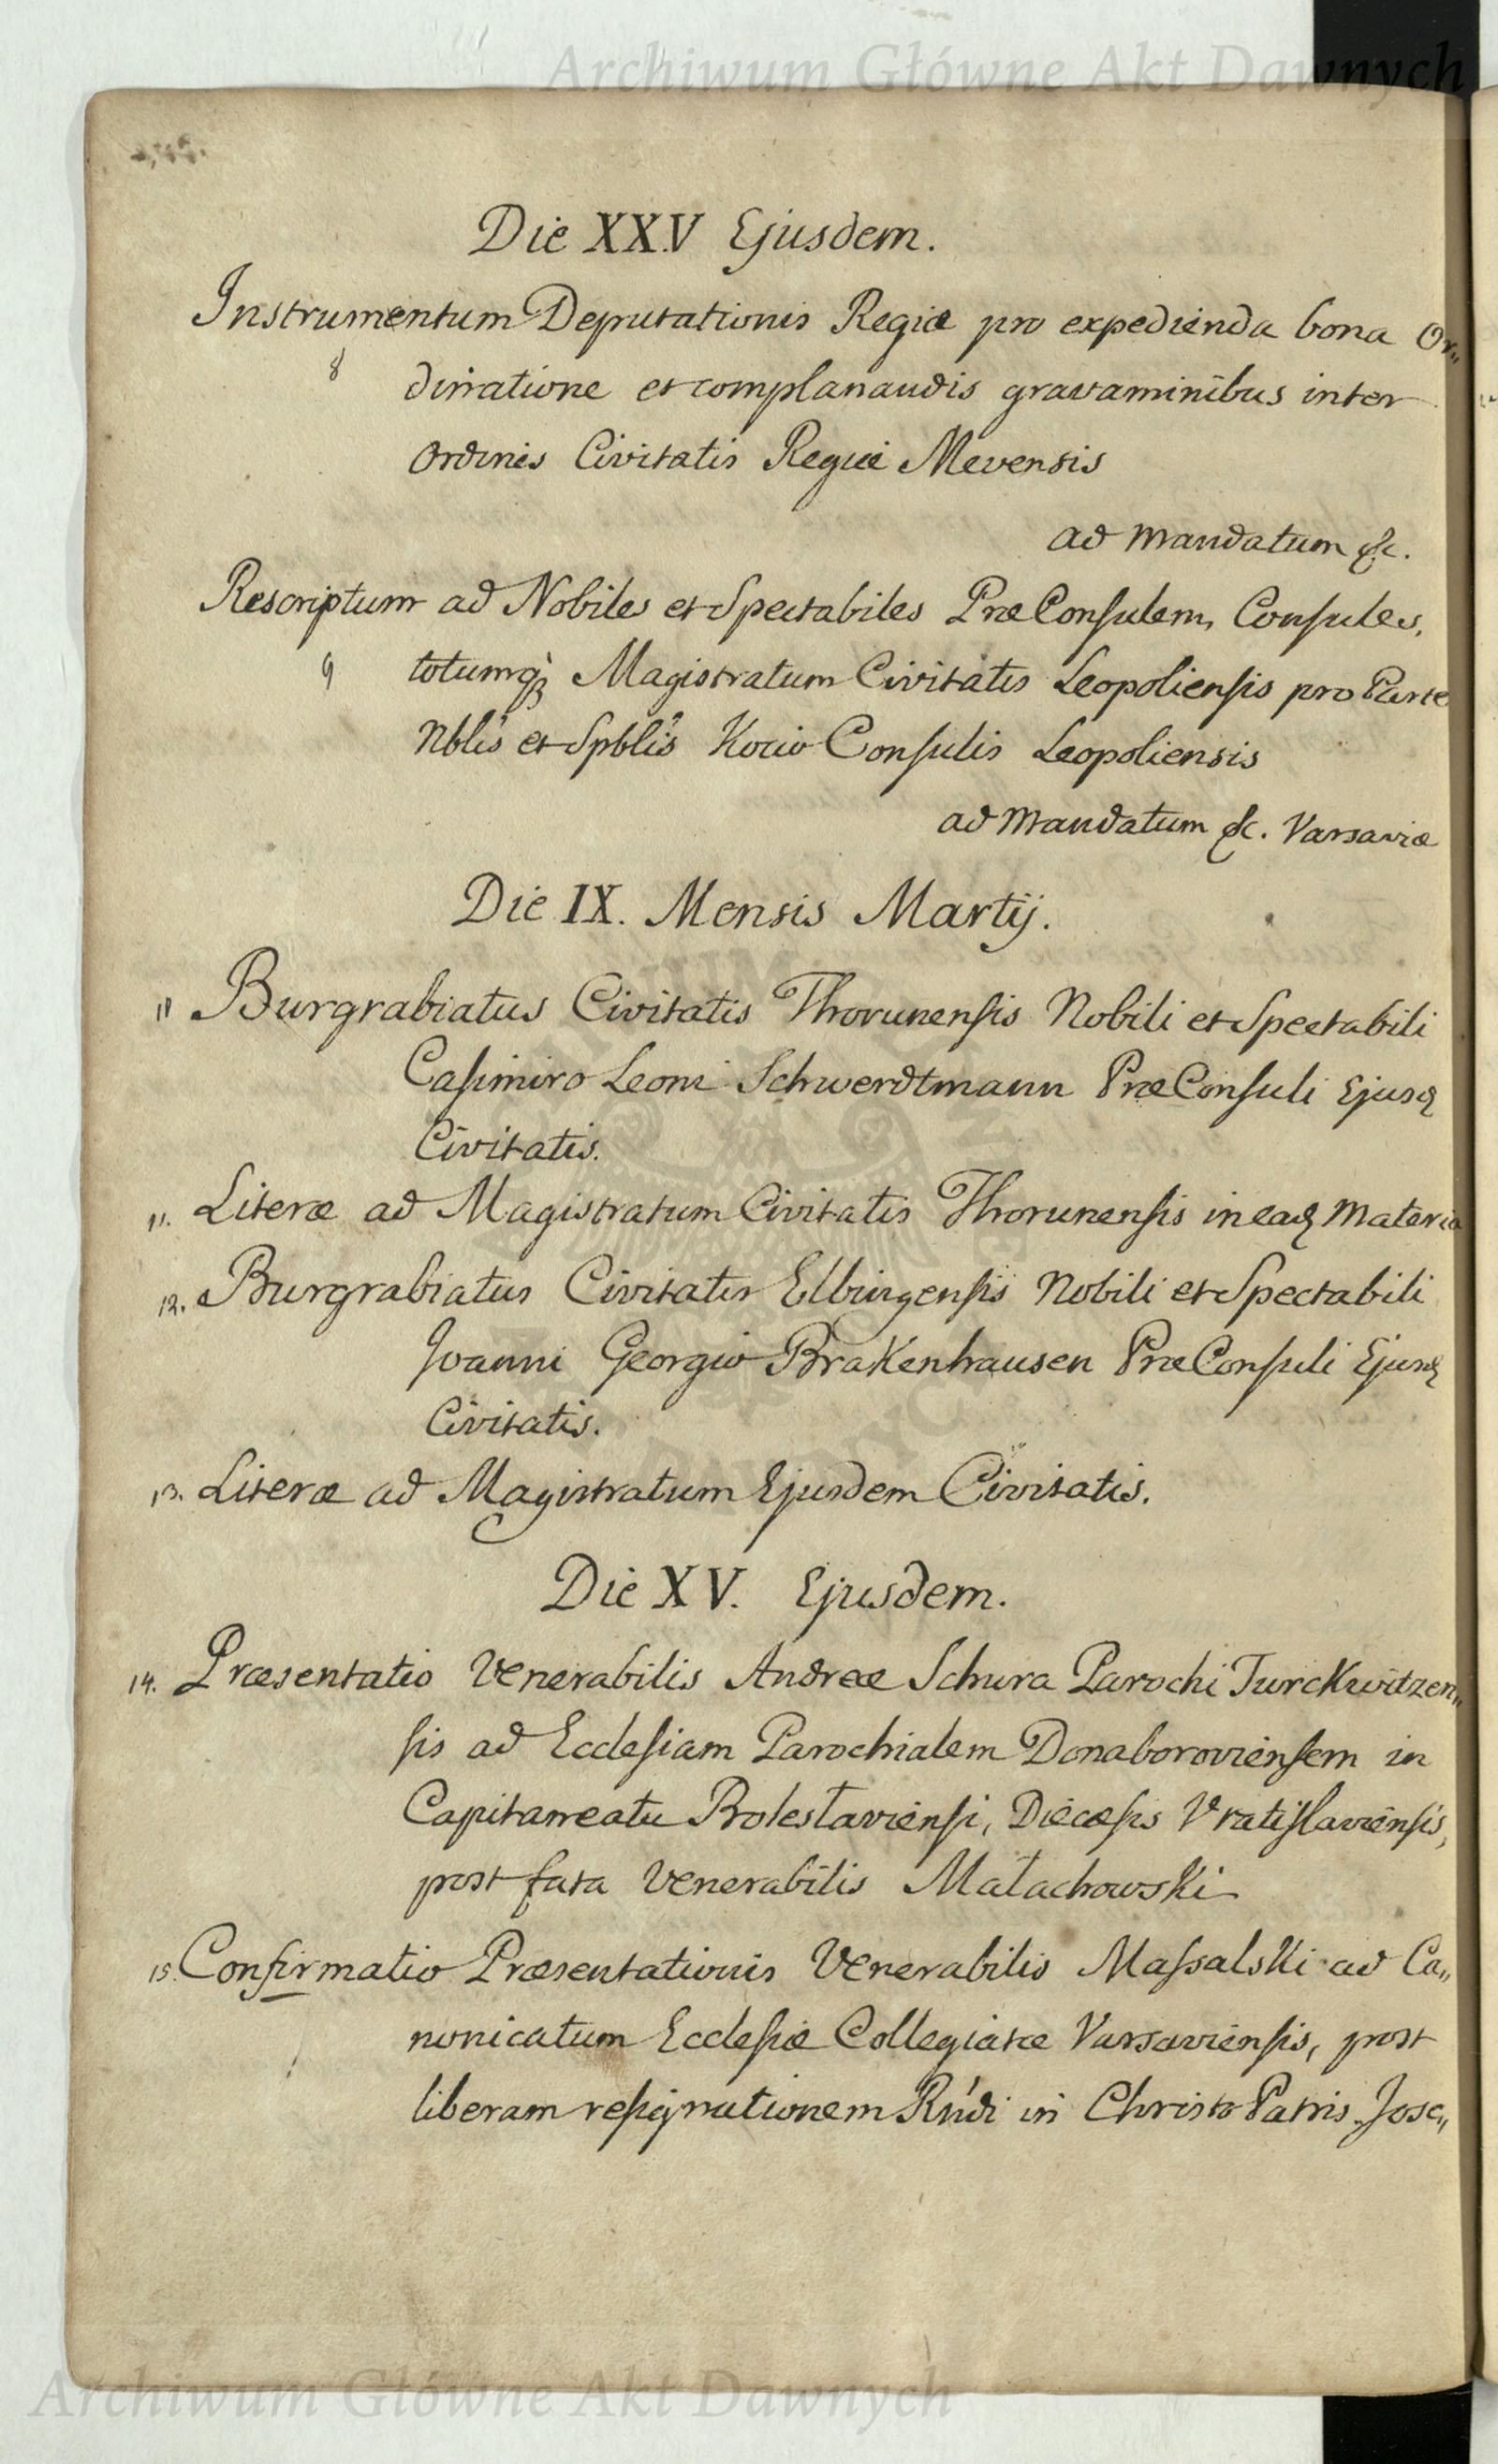 Archiwum Główne Akt Dawnych
Die XXV Ejusdem.
Instrumentum Deputationis Regiæ pro expedienda bona Or„
8 dinatione et complanandis gravaminibus inter
Ordines Civitatis Regiæ Mevensis
ad Mandatum &c.
Rescriptum ad Nobiles et Spectabiles PræConsulem, Consules,
9 totumq; Magistratum Civitatis Leopoliensis pro Parte
Nblis et Spblis Consulis Leopoliensis
ad Mandatum &c. Varsaviæ
Die IX. Mensis Martij.
Burgrabiatus Civitatis Thorunensis Nobili et Spectabili
Casimiro Leoni Schwerdtmann PræConsuli Ejusq
Civitatis.
11. Literæ ad Magistratum Civitatis Thorunensis in eaq Materia
12. Burgrabiatus Civitatis Elbingensis Nobili et Spectabili
Joanni Georgio Brakenhausen PræConsuli Ejusq
Civitatis.
13. Literæ ad Magistratum Ejusdem Civitatis.
Die XV. Ejusdem.
14. Præsentatio Venerabilis Andreæ Schura Parochi Turckwitzen„
sis ad Ecclesiam Parochialem Donaboroviensem in
Capitaneatu Boleslaviensi, Diecæsis Vratislaviensis,
post fata Venerabilis Malachowski
15. Confirmatio Præsentationis Venerabilis Massalski ad Ca„
nonicatum Ecclesiæ Collegiatæ Varsaviensis, post
liberam resignationem Rndi in Christo Patris Jose„
Archiwum Główne Akt Dawnych